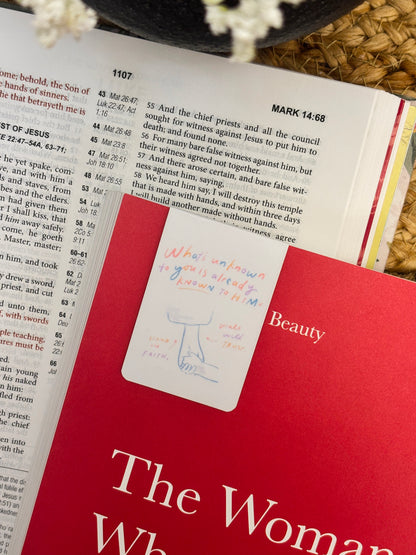 1107
MARK 14:68
ome; behold, the Son of
he hands of sinners.
he that betrayeth me is
EST OF JESUS
E 22:47–54A, 63–71;
he yet spake, com-
ve, and with him
ds and staves, from
bes and the elders.
had given them
r I shall kiss, that
d him away safely.
come, he goeth
Master, master;
hands on him,
y drew a sword,
priest, and cut
nto them,
with swords
ple teaching,
ures must be
ain young
his naked
n him:
fled from
gh priest:
the chief
43 Mat 26:47;
Luk 22:47; Act
1:16
44 Mat 26:48
45 Mat 23:8
47 Mat 26:51;
Joh 18:10
48 Mat 26:55
58
2:19;
9:11
60–61
26:62
55 And the chief priests and all the council
sought for witness against Jesus to put him to
death; and found none.
56 For many bare false witness against him, but
their witness agreed not together.
57 And there arose certain, and bare false wit-
ness against him, saying,
58 We heard him say, I will destroy this temple
that is made with hands, and within three days
I will build another made without hands.
witness agree
What's unknown
to you is already
KNOWN TO HIM.
FAITH,
TRUST
Beauty
The Woman